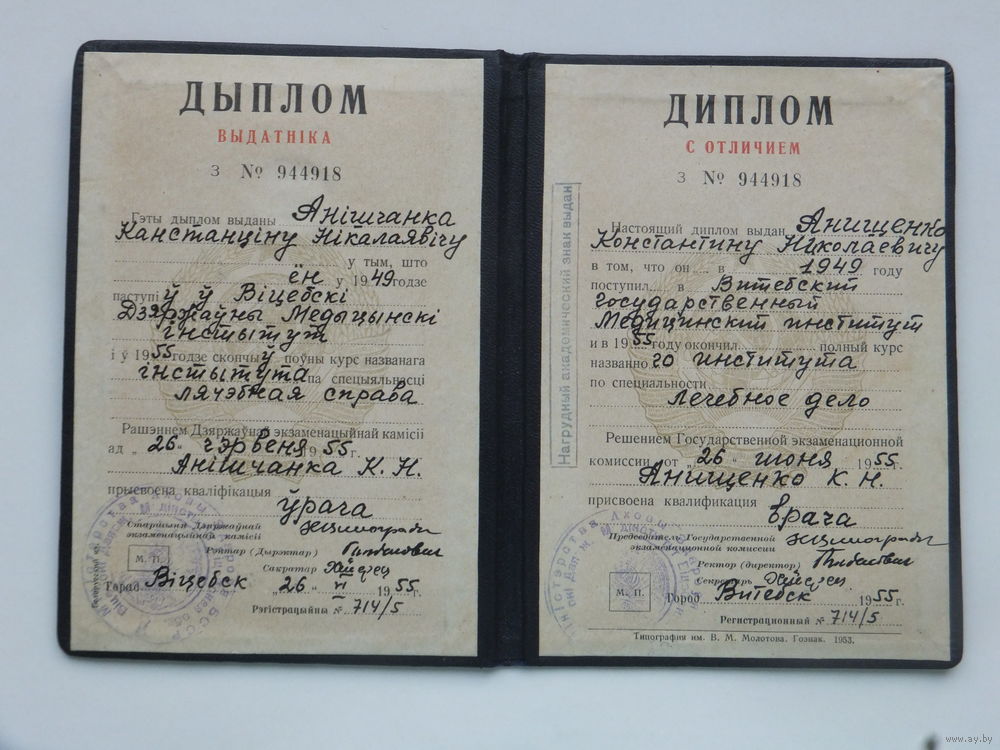 ДЫПЛОМ
ВЫДАТНІКА
З № 944918
Гэты дыплом выданы Анішчанка
Канстанціну Нікалаявічу
у тым, што
ён у 1949 годзе
паступіў ў Віцебскі
Дзяржаўны Медыцынскі
інстытут
і ў 1955 годзе скончыў поўны курс названага
інстытута па спецыяльнасці
лячэбная справа
Рашэннем Дзяржаўнай экзаменацыйнай камісіі
ад „26" чэрвеня 1955 г.
Анішчанка К. Н.
прысвоена кваліфікацыя
ўрача
Старшыня Дзяржаўнай
экзаменацыйнай камісіі
Рэктар (Дырэктар)
Сакратар
М. П.
Горад Віцебск „26" VI 1955 г.
Рэгістрацыйны № 714/5
ДИПЛОМ
С ОТЛИЧИЕМ
З № 944918
Нагрудный академический знак выдан
Настоящий диплом выдан Анищенко
Константину Николаевичу
в том, что он в 1949 году
поступил в Витебский
Государственный
Медицинский институт
и в 1955 году окончил полный курс
названного института
по специальности
лечебное дело
Решением Государственной экзаменационной
комиссии от „26" июня 1955 г.
Анищенко К. Н.
присвоена квалификация
врача
Председатель Государственной
экзаменационной комиссии
Ректор (директор)
Секретарь
М. П.
Город Витебск 1955 г.
Регистрационный № 714/5
Типография им. В. М. Молотова. Гознак. 1953.
www.ay.by